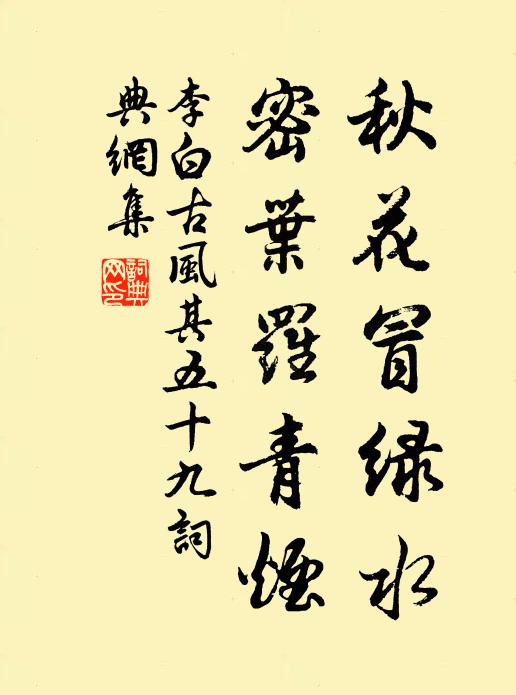 秋花冒緑水
密葉羅青煙
李白古風其五十九詞
典網集
詞典
网印